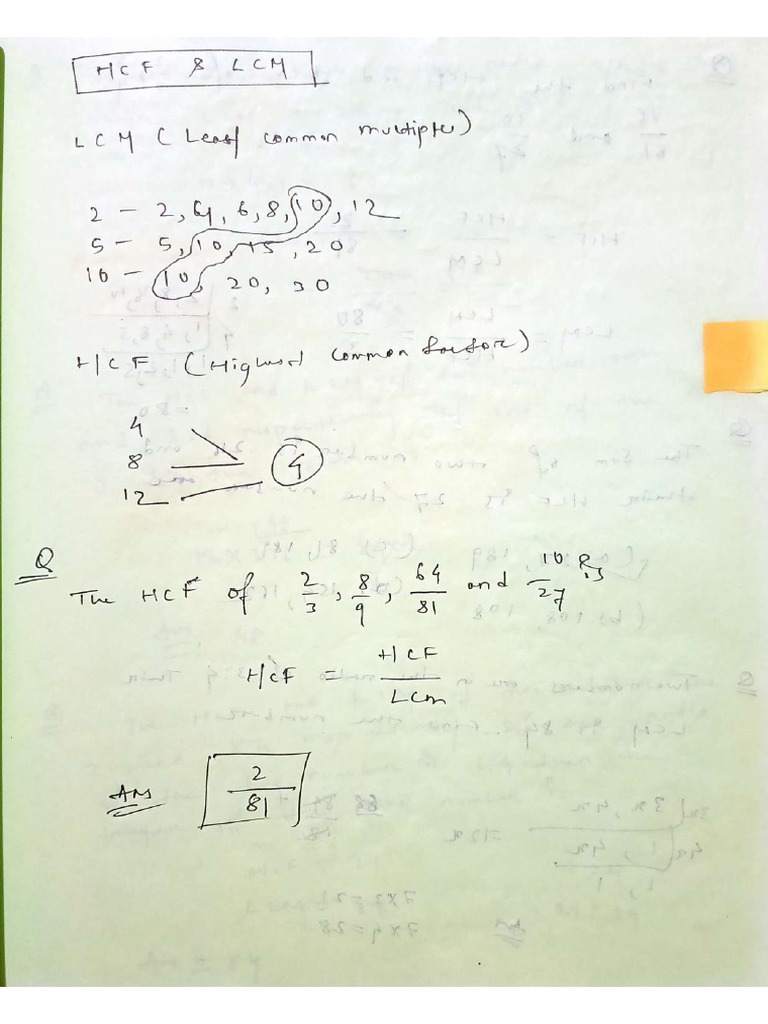 HCF & LCM
LCM (Least common multiple)
2 - 2, 4, 6, 8, 10, 12
5 - 5, 10, 15, 20
10 - 10, 20, 30
HCF (Highest common factor)
4
8
12
4
Q
The HCF of 2/3, 8/9, 64/81 and 10/27 is
HCF = HCF/LCM
Ans 2/81